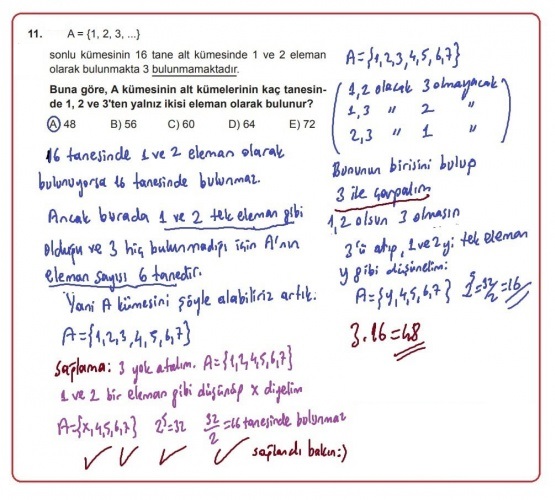 11. A = {1, 2, 3, ...}
sonlu kümesinin 16 tane alt kümesinde 1 ve 2 eleman
olarak bulunmakta 3 bulunmamaktadır.
Buna göre, A kümesinin alt kümelerinin kaç tanesin-
de 1, 2 ve 3'ten yalnız ikisi eleman olarak bulunur?
A) 48 B) 56 C) 60 D) 64 E) 72
16 tanesinde 1 ve 2 eleman olarak
bulunuyorsa 16 tanesinde bulunmaz.
Ancak burada 1 ve 2 tek eleman gibi
olduğu ve 3 hiç bulunmadığı için A'nın
eleman sayısı 6 tanedir.
Yani A kümesini şöyle alabiliriz artık:
A={1,2,3,4,5,6,7}
Sağlama: 3 yok atalım. A={1,2,4,5,6,7}
1 ve 2 bir eleman gibi düşünüp x diyelim
A={x,4,5,6,7} 2^5=32 32/2=16 tanesinde bulunmaz
sağlandı bakın:)
A={1,2,3,4,5,6,7}
1,2 olacak 3 olmayacak
1,3 " 2 "
2,3 " 1 "
Bununun birisini bulup
3 ile çarpalım
1,2 olsun 3 olmasın
3'ü atıp, 1 ve 2 yi tek eleman
y gibi düşünelim:
A={y,4,5,6,7} 2^5=32/2=16
3.16=48